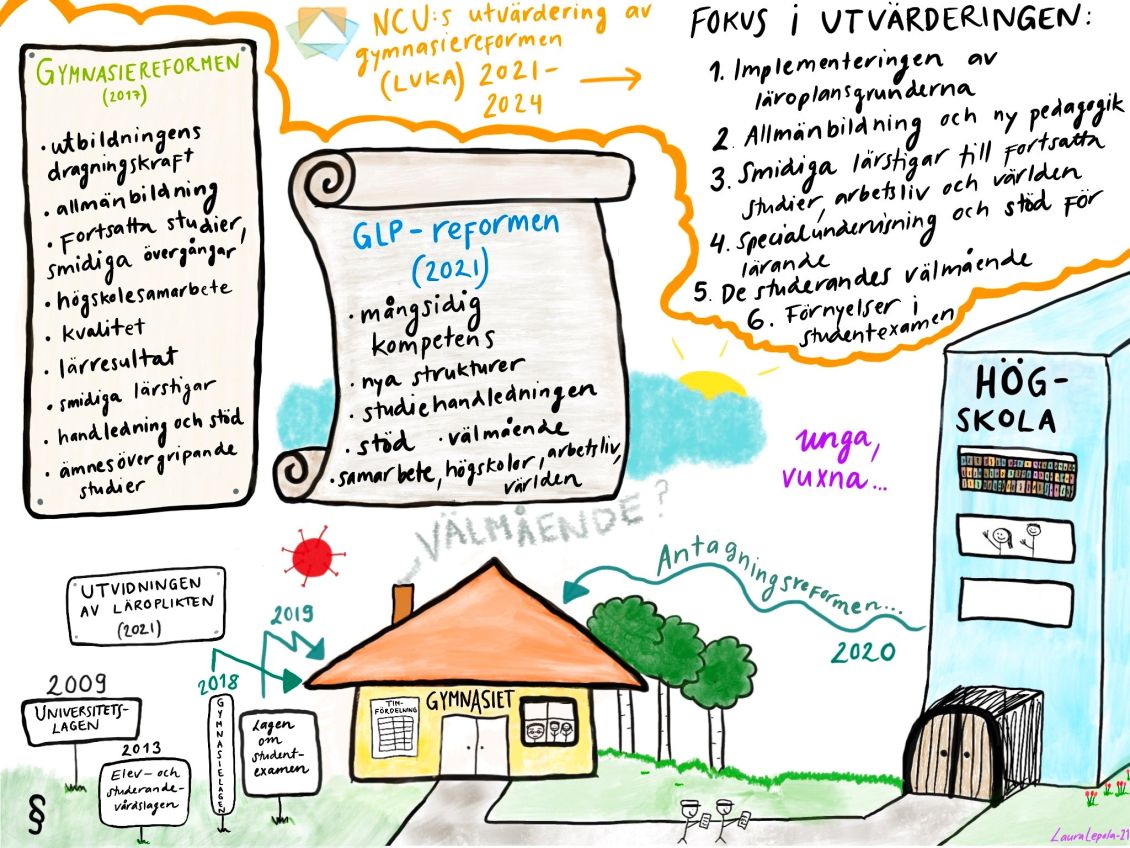 GYMNASIEREFORMEN
(2017)
• utbildningens
dragningskraft
• allmänbildning
• Fortsatta studier,
smidiga övergångar
• högskolesamarbete
• kvalitet
• lärresultat
• smidiga lärstigar
• handledning och stöd
• ämnesövergripande
studier
NCU:s utvärdering av
gymnasiereformen
(LUKA) 2021-
2024
FOKUS i UTVÄRDERINGEN:
1. Implementeringen av
läroplansgrunderna
2. Allmänbildning och ny pedagogik
3. Smidiga lärstigar till Fortsatta
studier, arbetsliv och världen
4. Specialundervisning och stöd För
lärande
5. De studerandes välmående
6. Förnyelser i
studentexamen
GLP-reformen
(2021)
• mångsidig
kompetens
• nya strukturer
• studiehandledningen
• stöd • välmående
• samarbete, högskolor, arbetsliv,
världen
HÖG-
SKOLA
unga,
vuxna...
VÄLMÅENDE?
Antagningsreformen...
2020
UTVIDNINGEN
AV LÄROPLIKTEN
(2021)
2019
2018
2009
UNIVERSITETS-
LAGEN
2013
Elev- och
studerande-
vårdslagen
GYMNASIELAGEN
Lagen
om
student-
examen
TIM-
FÖRDELNING
GYMNASIET
§
LauraLepola-21